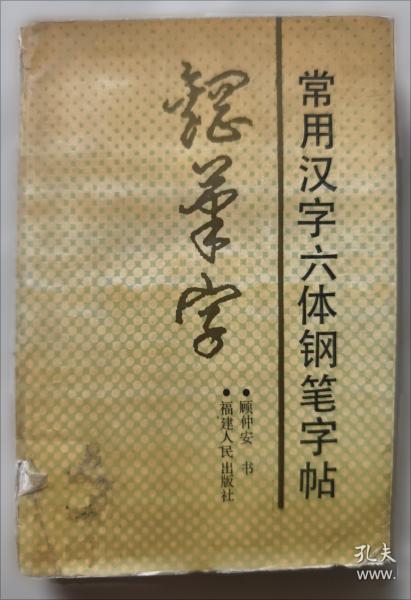 常用汉字六体钢笔字帖
鋼筆字
●顾仲安 书
●福建人民出版社
孔夫子